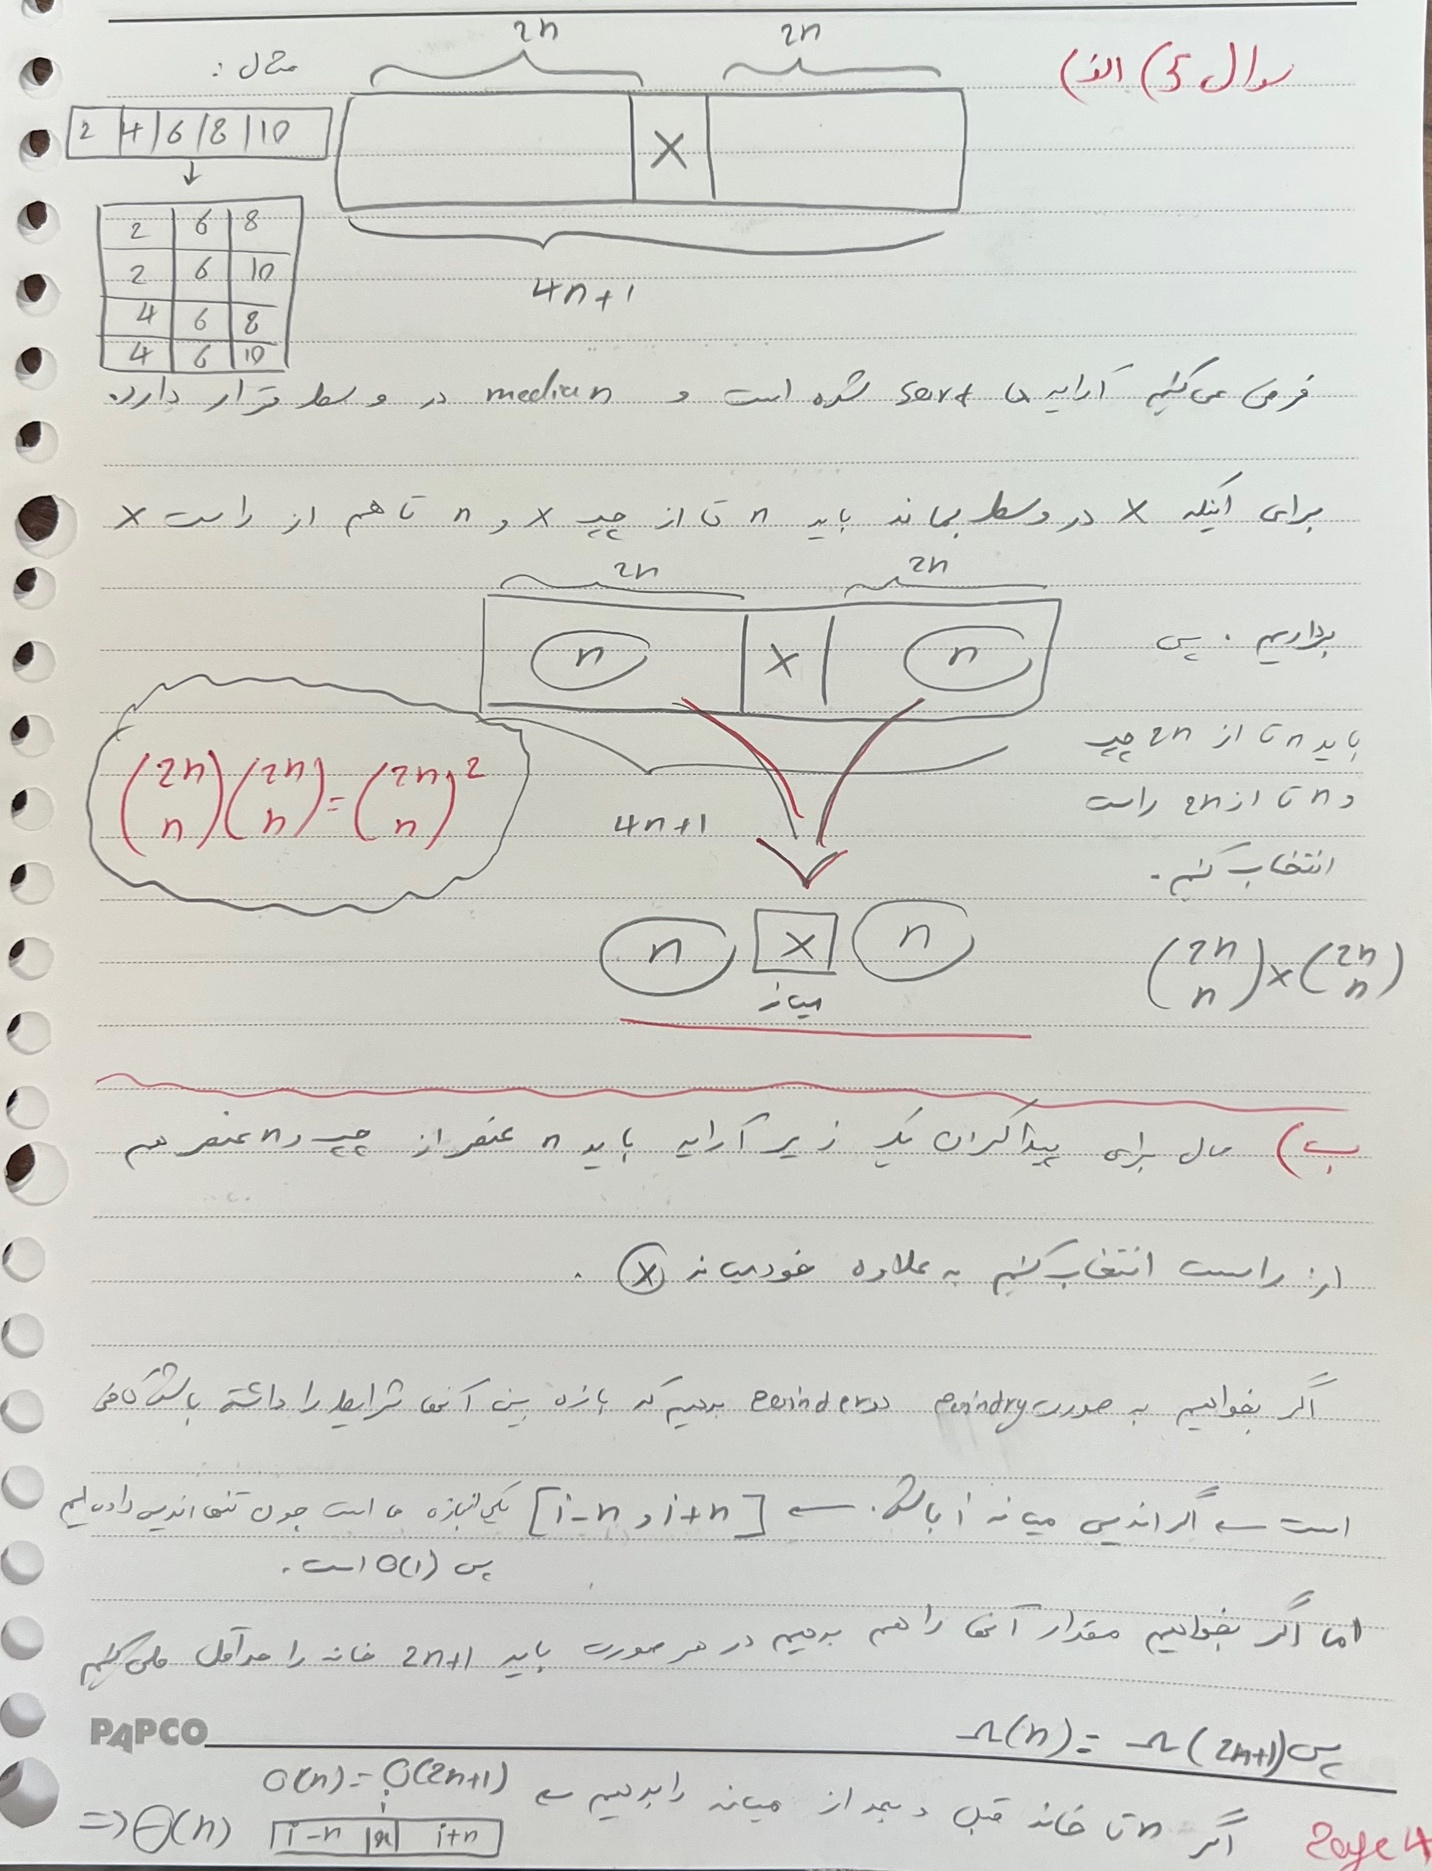 سوال 5) الف)
2n 2n
X
4n+1
مثال :
2 | 4 | 6 | 8 | 10
↓
2 | 6 | 8
2 | 6 | 10
4 | 6 | 8
4 | 6 | 10
فرض می‌کنیم آرایه ما sort شده است و median در وسط قرار دارد.
برای اینکه X در وسط بماند باید n تا از چپ X و n تا هم از راست X
برداریم. پس
باید n تا از 2n چپ
و n تا از 2n راست
انتخاب کنیم.
(2n n)×(2n n)
2n 2n
n X n
4n+1
n X n
میانه
(2n n)(2n n)=(2n n)²
ب) حال برای پیدا کردن یک زیر آرایه باید n عنصر از چپ و n عنصر هم
از راست انتخاب کنیم به علاوه خود میانه X .
اگر بخواهیم به صورت بدهیم که بازه بین آنها شرایط را داشته باشد کافی
است ← اگر اندیس میانه i باشد. ← [i-n , i+n] یکی از بازه ها است چون تنها اندیس داده ایم
پس O(1) است.
اما اگر بخواهیم مقدار آنها را هم بدهیم در هر صورت باید 2n+1 خانه را حداقل طی کنیم
پس Ω(2n+1) = Ω(n)
PAPCO
اگر n تا خانه قبل و بعد از میانه را بدهیم ← O(n) = O(2n+1)
i
i-n |x| i+n
⇒ Θ(n)
Page 4